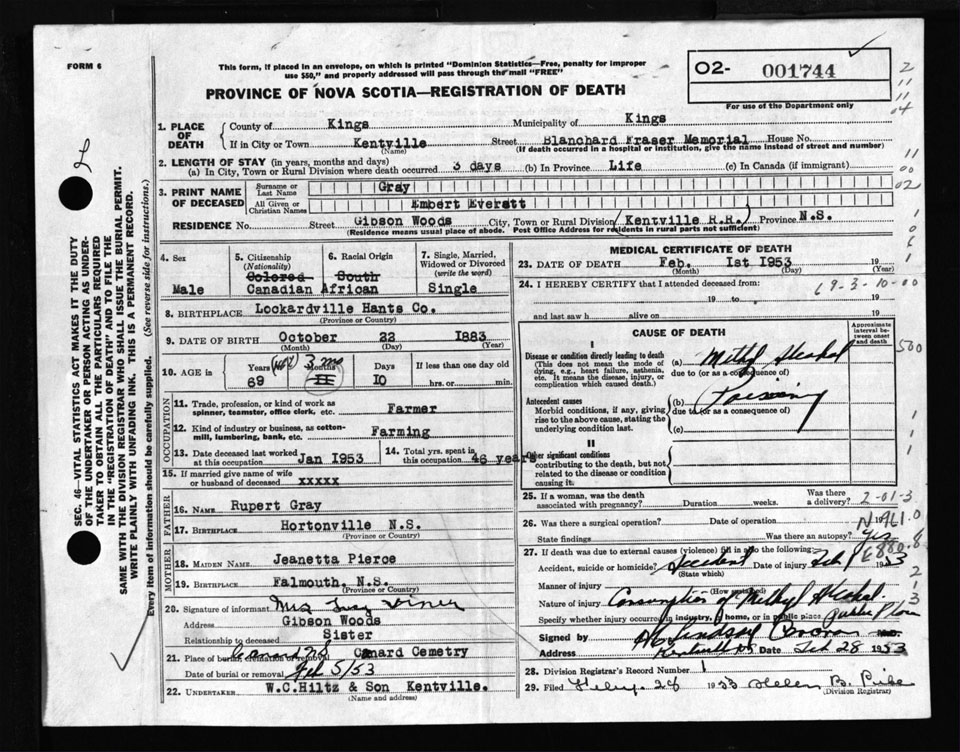 FORM 6
This form, if placed in an envelope, on which is printed "Dominion Statistics—Free, penalty for improper
use $50," and properly addressed will pass through the mail "FREE"
PROVINCE OF NOVA SCOTIA—REGISTRATION OF DEATH
O2- 001744
For use of the Department only
1. PLACE OF DEATH
County of Kings Municipality of Kings
If in City or Town Kentville Street Blanchard Fraser Memorial House No.
(Name) (If death occurred in a hospital or institution, give the name instead of street and number)
2. LENGTH OF STAY (in years, months and days)
(a) In City, Town or Rural Division where death occurred 3 days (b) In Province Life (c) In Canada (if immigrant)
3. PRINT NAME OF DECEASED
Surname or Last Name Gray
All Given or Christian Names Embert Everett
RESIDENCE No. Street Gibson Woods City, Town or Rural Division (Kentville R.R.) Province N.S.
(Residence means usual place of abode. Post Office Address for residents in rural parts not sufficient)
4. Sex
Male
5. Citizenship
(Nationality)
Colored
Canadian
6. Racial Origin
South
African
7. Single, Married,
Widowed or Divorced
(write the word)
Single
8. BIRTHPLACE Lockardville Hants Co.
(Province or Country)
9. DATE OF BIRTH October 22 1883
(Month) (Day) (Year)
10. AGE in Years Months Days If less than one day old
69 3 mo 11 10 hrs. or min.
OCCUPATION
11. Trade, profession, or kind of work as
spinner, teamster, office clerk, etc. Farmer
12. Kind of industry or business, as cotton-
mill, lumbering, bank, etc. Farming
13. Date deceased last worked
at this occupation Jan 1953
14. Total yrs. spent in
this occupation 46 years
15. If married give name of wife
or husband of deceased xxxxx
FATHER
16. Name Rupert Gray
17. Birthplace Hortonville N.S.
(Province or Country)
MOTHER
18. Maiden Name Jeanetta Pierce
19. Birthplace Falmouth, N.S.
(Province or Country)
20. Signature of informant Mrs
Address Gibson Woods
Relationship to deceased Sister
21. Place of burial, cremation or removal Canard Cemetry
Date of burial or removal Feb 5/53
22. Undertaker W.C.Hiltz & Son Kentville.
(Name and address)
MEDICAL CERTIFICATE OF DEATH
23. DATE OF DEATH Feb. 1st 1953 19
(Month) (Day) (Year)
24. I HEREBY CERTIFY that I attended deceased from
19 to 19
and last saw h alive on 19
CAUSE OF DEATH
Approximate interval between onset and death
I
Disease or condition directly leading to death
(This does not mean the mode of
dying, e.g., heart failure, asthenia,
etc. It means the disease, injury, or
complication which caused death.)
(a) Methyl Alcohol
due to (or as a consequence of)
Antecedent causes
Morbid conditions, if any, giving
rise to the above cause, stating the
underlying condition last.
(b) Poisoning
due to (or as a consequence of)
(c)
II
Other significant conditions
contributing to the death, but not
related to the disease or condition
causing it.
25. If a woman, was the death
associated with pregnancy? Duration weeks. Was there a delivery?
2-01-3
26. Was there a surgical operation? Date of operation 19
State findings Was there an autopsy? Yes
27. If death was due to external causes (violence) fill in also the following:
Accident, suicide or homicide? Accident Date of injury Feb 1 1953
(State which)
Manner of injury
(How sustained)
Nature of injury Consumption of Methyl Alcohol.
Specify whether injury occurred in industry, home, or in public place
Signed by Lindsay M.D.
Address Kentville NS Date Feb 28 1953
28. Division Registrar's Record Number 1
29. Filed Feby. 28 1953 Helen B.
(Division Registrar)
SEC. 46—VITAL STATISTICS ACT MAKES IT THE DUTY
OF THE UNDERTAKER OR PERSON ACTING AS UNDER-
TAKER TO OBTAIN ALL THE PARTICULARS REQUIRED
IN THE "REGISTRATION OF DEATH" AND TO FILE THE
SAME WITH THE DIVISION REGISTRAR WHO SHALL ISSUE THE BURIAL PERMIT.
WRITE PLAINLY WITH UNFADING INK. THIS IS A PERMANENT RECORD.
Every item of information should be carefully supplied. (See reverse side for instructions.)